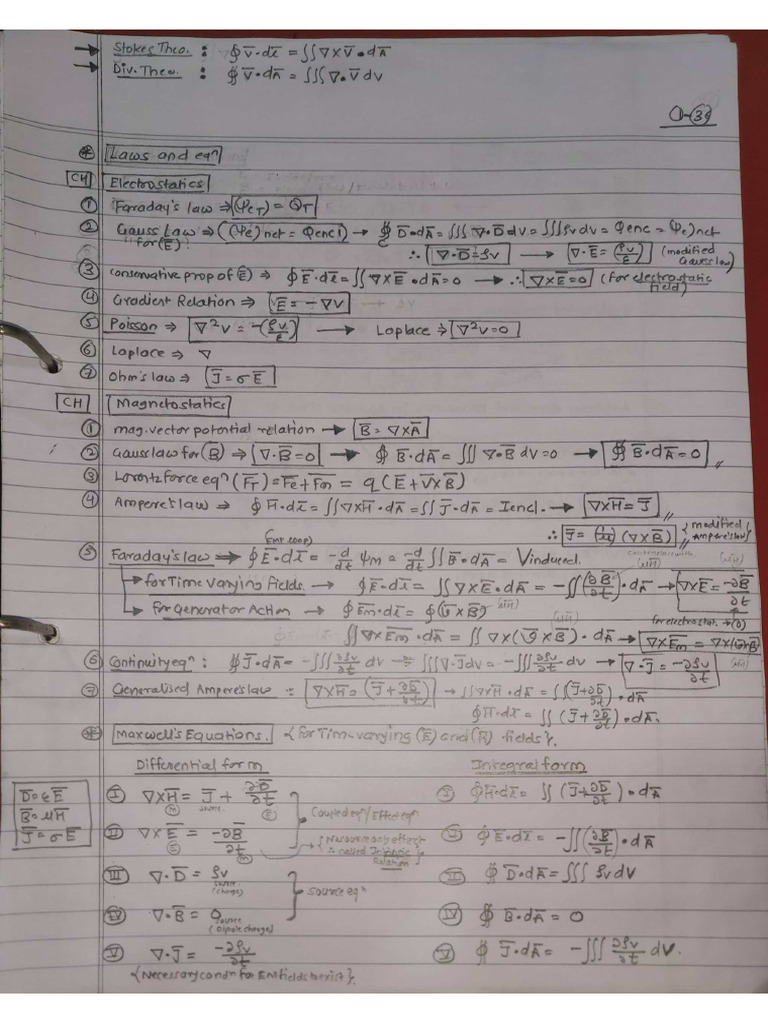 → Stokes Theo. : ∮ V̅•dl̅ = ∬ ∇×V̅•dA̅
→ Div. Theo. : ∯ V̅•dA̅ = ∭ ∇•V̅ dv
* Laws and eqⁿ
CH Electrostatics
① Faraday's law ⇒ (ψe_T) = Q_T
② Gauss Law ⇒ (ψe)net = Qencl → ∯ D̅•dA̅ = ∭ ∇•D̅ dv = ∭ ρv dv = Qenc = ψe)net
for (E̅) ∴ ∇•D̅ = ρv → ∇•E̅ = (ρv/ε) (modified Gauss law)
③ conservative prop of E̅) ⇒ ∮ E̅•dl̅ = ∬ ∇×E̅•dA̅ = 0 → ∴ ∇×E̅ = 0 (for electrostatic field)
④ Gradient Relation ⇒ E̅ = -∇V
⑤ Poisson ⇒ ∇²V = -(ρv/ε) → Laplace ⇒ ∇²V = 0
⑥ Laplace ⇒ ∇
⑦ Ohm's law ⇒ J̅ = σE̅
CH Magnetostatics
① mag. vector potential relation → B̅ = ∇×A̅
② Gauss law for (B̅) ⇒ ∇•B̅ = 0 → ∯ B̅•dA̅ = ∭ ∇•B̅ dv = 0 → ∯ B̅•dA̅ = 0
③ Lorentz force eqⁿ (F̅_T) = F̅e + F̅m = q(E̅ + V̅×B̅)
④ Ampere's law ⇒ ∮ H̅•dl̅ = ∬ ∇×H̅•dA̅ = ∬ J̅•dA̅ = Iencl. → ∇×H̅ = J̅
∴ J̅ = (1/μ) (∇×B̅) {modified Ampere's law}
(Emf loop)
⑤ Faraday's law → ∮ E̅•dl̅ = -d/dt ψm = -d/dt ∬ B̅•dA̅ = Vinduced.
→ for Time varying fields. → ∮ E̅•dl̅ = ∬ ∇×E̅•dA̅ = -∬ (∂B̅/∂t)•dA̅ → ∇×E̅ = -∂B̅/∂t
→ for Generator Action → ∮ E̅m•dl̅ = ∮ (v̅×B̅) (μH̅) for electrostat. → (0)
∬ ∇×E̅m•dA̅ = ∬ ∇×(v̅×B̅)•dA̅ → ∇×E̅m = ∇×(v̅×B̅)
⑥ Continuity eqⁿ : ∯ J̅•dA̅ = -∭ ∂ρv/∂t dv ⇒ ∭ ∇•J̅ dv = -∭ ∂ρv/∂t dv → ∇•J̅ = -∂ρv/∂t
⑦ Generalised Ampere's law : ∇×H̅ = (J̅+∂D̅/∂t) → ∬ ∇×H̅•dA̅ = ∬ (J̅+∂D̅/∂t)•dA̅
∮ H̅•dl̅ = ∬ (J̅+∂D̅/∂t)•dA̅.
* Maxwell's Equations. {for Time-varying (E̅) and (H̅) fields}.
Differential form Integral form
D̅ = εE̅
B̅ = μH̅
J̅ = σE̅
Ⅰ ∇×H̅ = J̅ + ∂D̅/∂t Ⅰ ∮ H̅•dl̅ = ∬ (J̅+∂D̅/∂t)•dA̅
Coupled eqⁿ/Effect eqⁿ
Ⅱ ∇×E̅ = -∂B̅/∂t Ⅱ ∮ E̅•dl̅ = -∬ (∂B̅/∂t)•dA̅
∴ called Intrinsic Relation}
Ⅲ ∇•D̅ = ρv source (charge) Ⅲ ∯ D̅•dA̅ = ∭ ρv dv
source eqⁿ
Ⅳ ∇•B̅ = 0 source (Dipole charge) Ⅳ ∯ B̅•dA̅ = 0
Ⅴ ∇•J̅ = -∂ρv/∂t Ⅴ ∯ J̅•dA̅ = -∭ ∂ρv/∂t dv.
{Necessary condⁿ for EM fields to exist}.